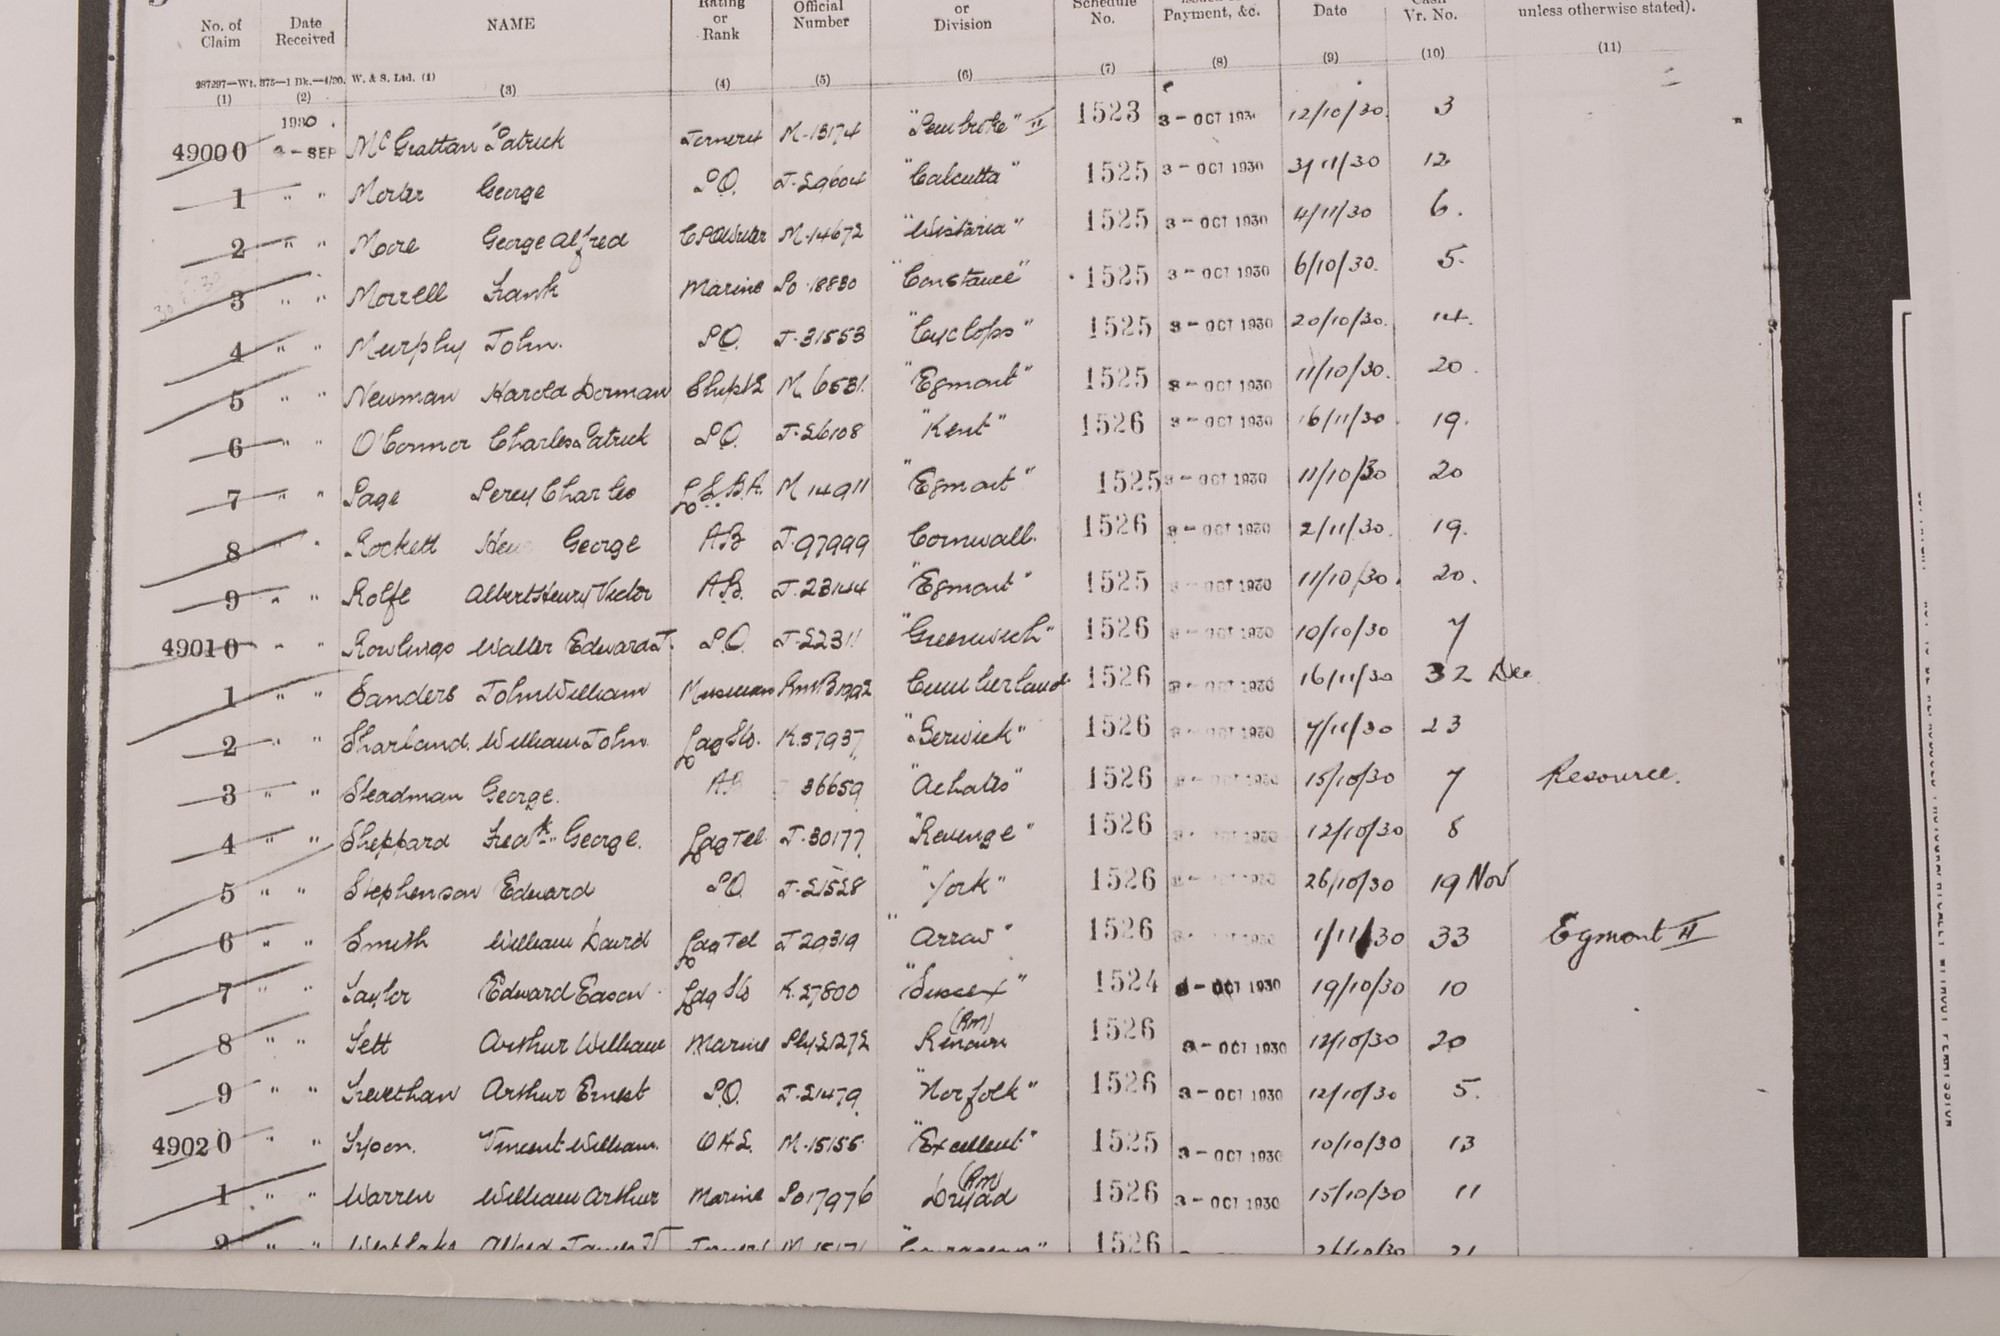 No. of Claim Date Received NAME Rating or Rank Official Number or Division Schedule No. Payment, &c. Date Cash Vr. No. unless otherwise stated).
287297—Wt. 375—1 Bk.—4/30. W. & S. Ltd. (1)
(1) (2) (3) (4) (5) (6) (7) (8) (9) (10) (11)
1930
49000 3 - SEP McGrattan Patrick M.13174 "Pembroke" II 1523 3 - OCT 193 12/10/30. 3
1 " " George P.O. "Calcutta" 1525 3 - OCT 1930 3/11/30 12
2 " " Moore George Alfred CPOWriter M.14672 "Wistaria" 1525 3 - OCT 1930 4/11/30 6.
3 " " Morrell Frank Marine Po.18830 "Constance" 1525 3 - OCT 1930 6/10/30. 5.
4 " " Murphy John. P.O. J.31553 "Cyclops" 1525 3 - OCT 1930 20/10/30. 14.
5 " " Newman Harold Dorman M 6531. "Egmont" 1525 3 - OCT 1930 11/10/30. 20.
6 " " O'Connor Charles Patrick P.O. J.26108 "Kent" 1526 3 - OCT 1930 16/11/30. 19.
7 " " Page Percy Charles L.S.B.A. M 14911 "Egmont" 1525 3 - OCT 1930 11/10/30 20
8 " " Rockett George AB J.97999 Cornwall. 1526 3 - OCT 1930 2/11/30. 19.
9 " " Rolfe Albert Henry Victor A.B. J.23144 "Egmont" 1525 3 - OCT 1930 11/10/30. 20.
49010 " " Rowlings Walter Edward J. P.O. J.22311 "Greenwich" 1526 3 - OCT 1930 10/10/30 7
1 " " Sanders John William Musician Cumberland 1526 3 - OCT 1930 16/11/30 32 Dec
2 " " Sharland. William John. Ldg Sto. K.57937 "Berwick" 1526 3 - OCT 1930 7/11/30 23
3 " " Steadman George. AB 36659 "Achates" 1526 3 - OCT 1930 15/10/30 7 Resource.
4 " " Sheppard Fredk. George. Ldg Tel J.30177 "Revenge" 1526 OCT 1930 12/10/30 8
5 " " Stephenson Edward P.O. J.21528 "York" 1526 OCT 1930 26/10/30 19 Nov
6 " " Smith William David Ldg Tel J 29319 "Arrow" 1526 OCT 1930 1/11/30 33 Egmont II
7 " " Taylor Edward Eason Ldg Sto K.27800 "Sussex" 1524 3 - OCT 1930 19/10/30 10
8 " " Tett Arthur William Marine Ply 21272 Renown (RM) 1526 3 - OCT 1930 12/10/30 20
9 " " Trevethan Arthur Ernest P.O. J.21479 "Norfolk" 1526 3 - OCT 1930 12/10/30 5.
49020 " " Vincent William. M.15155 "Excellent" 1525 3 - OCT 1930 10/10/30 13
1 " " Warren William Arthur Marine Po 17976 Dryad (RM) 1526 3 - OCT 1930 15/10/30 11
2 " " Westlake Alfred James 1526